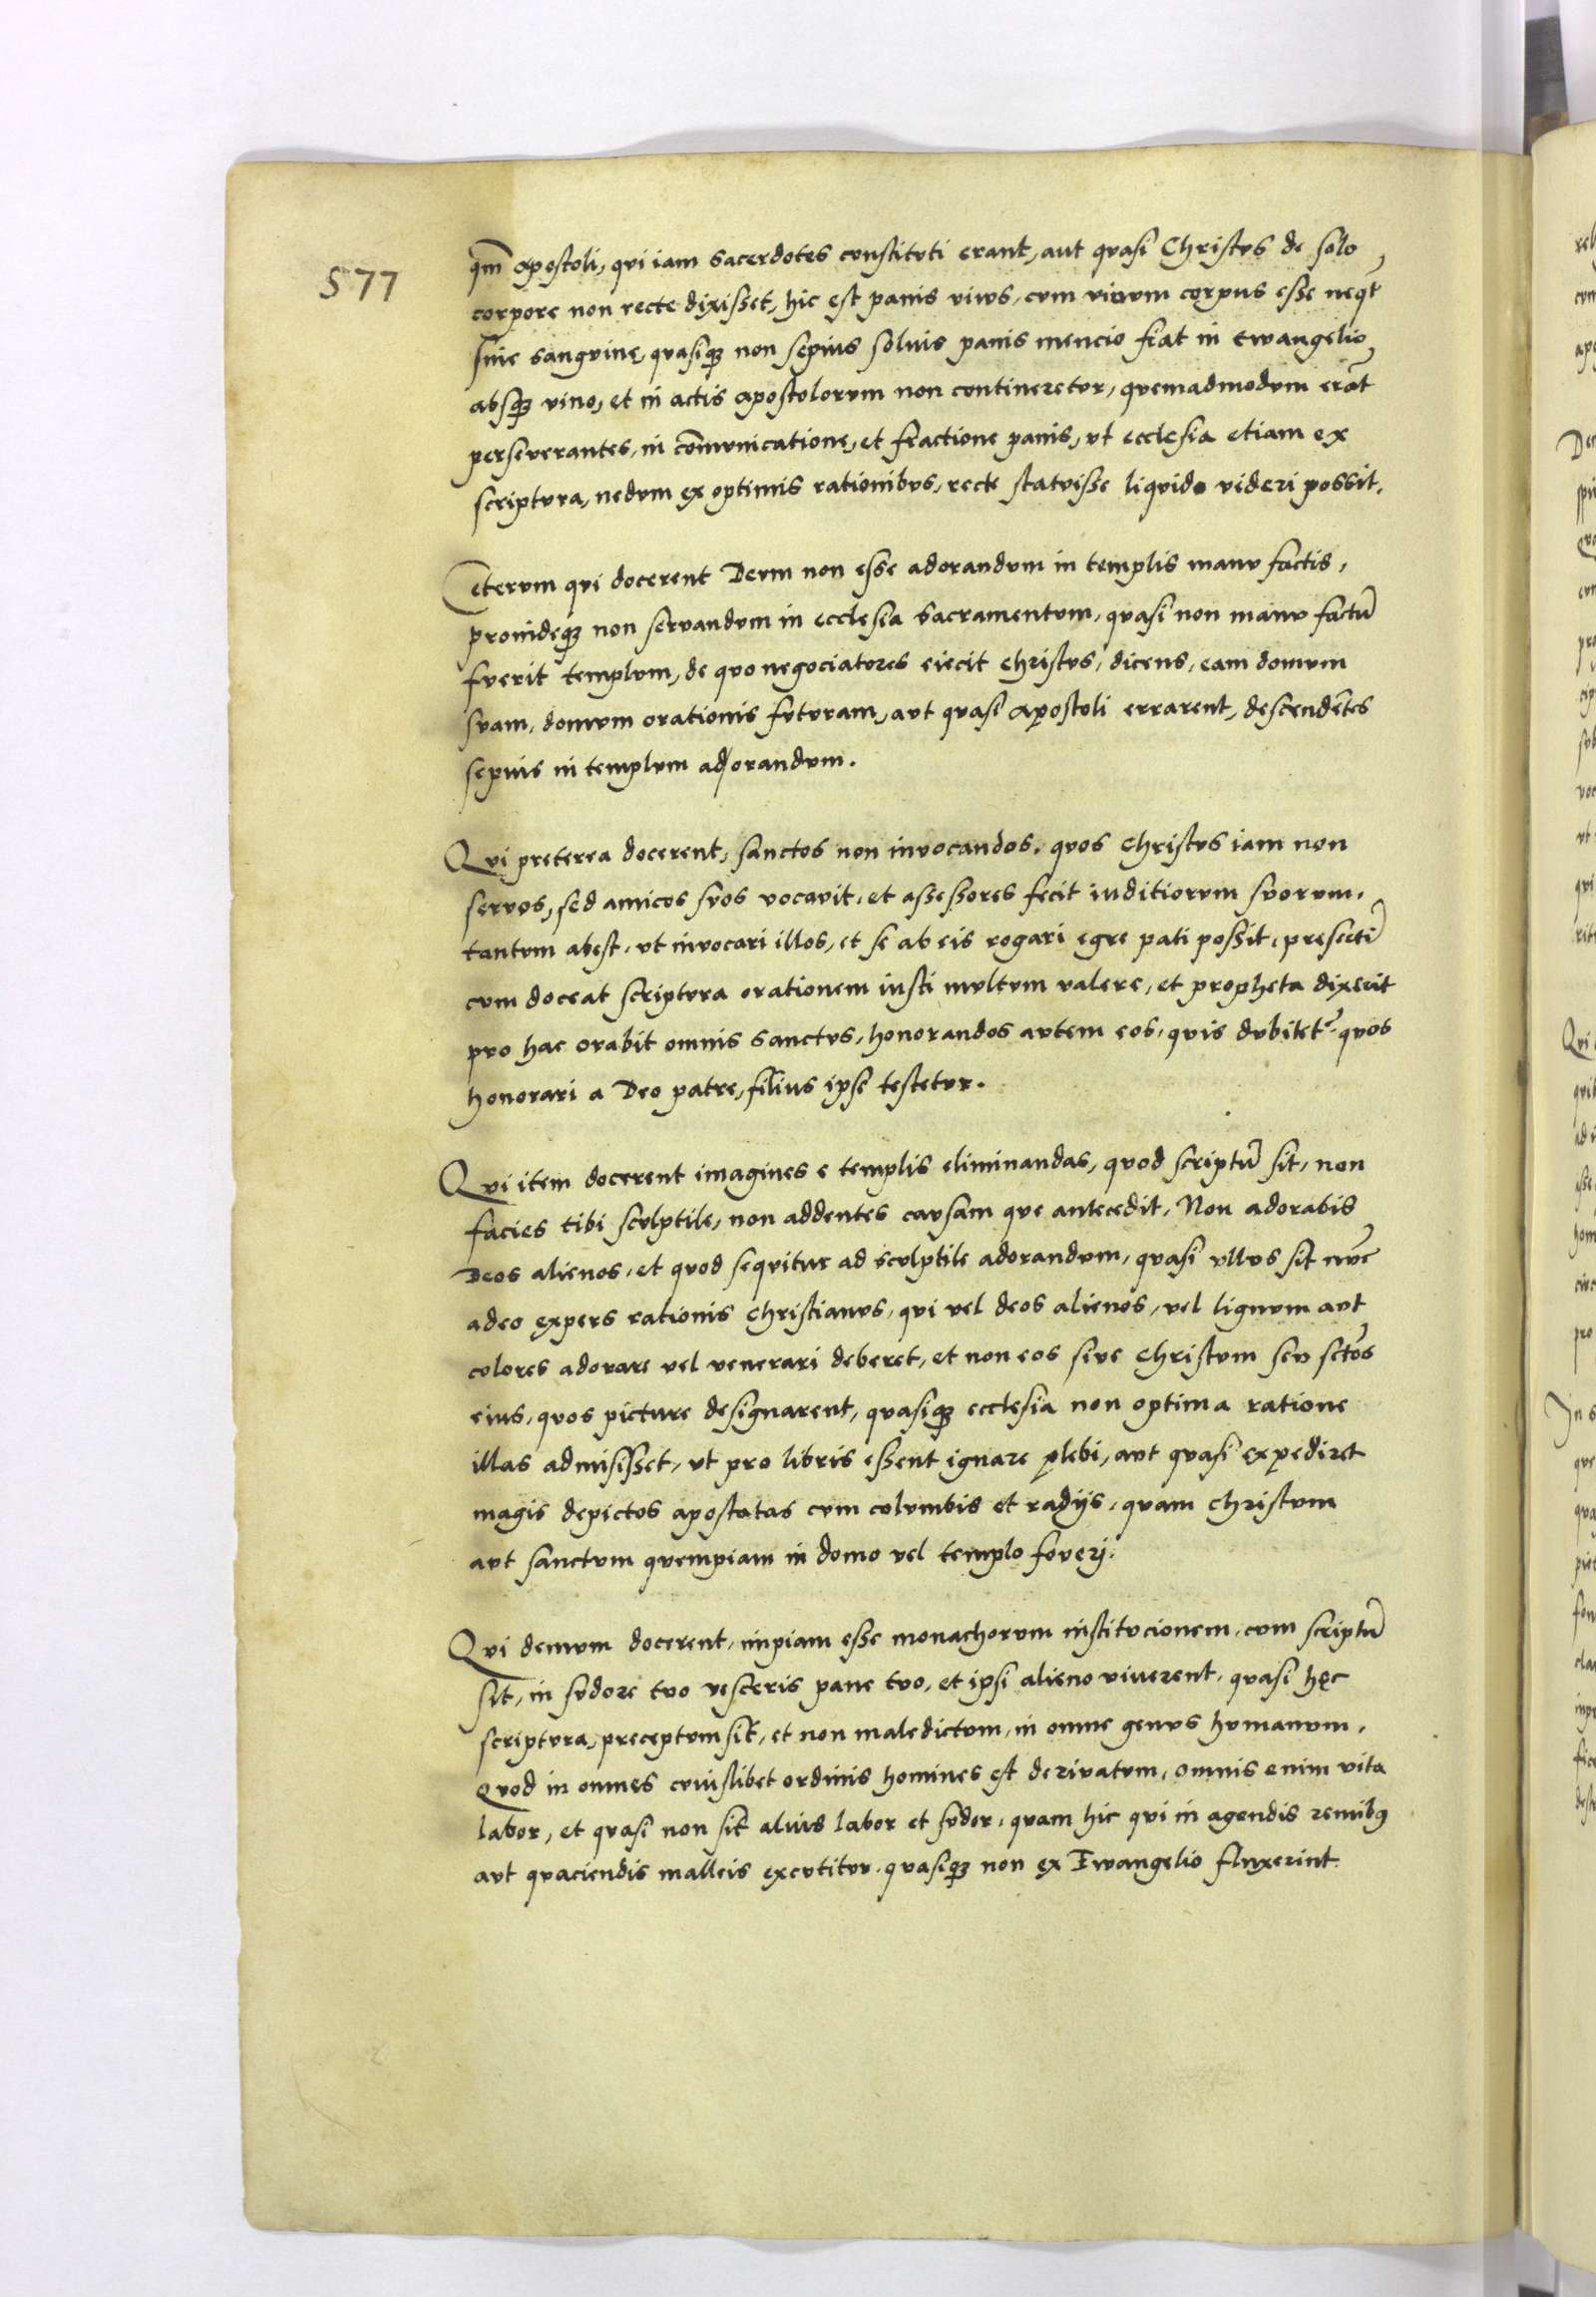 577
qm̄ apostoli, qui iam sacerdotes constituti erant, aut quasi Christus de solo
corpore non recte dixisset, hic est panis vivus, cum vivum corpus esse neqt̄
sine sanguine, quasiqȝ non sepius solius panis mencio fiat in Ewangelio,
absqȝ vino, et in actis apostolorum non contineretur, quemadmodum erāt
perseverantes, in com̄unicatione, et fractione panis, ut ecclesia etiam ex
scriptura, nedum ex optimis rationibus, recte statuisse liquido videri possit.
Ceterum qui docerent Deum non esse adorandum in templis manu factis,
proindeqȝ non servandum in ecclesia sacramentum, quasi non manu factū
fuerit templum, de quo negociatores eiecit christus, dicens, eam domum
suam, domum orationis futuram, aut quasi apostoli errarent, descendētes
sepius in templum ad/orandum.
Qui preterea docerent, sanctos non invocandos, quos christus iam non
servos, sed amicos suos vocavit, et assessores fecit iuditiorum suorum,
tantum abest, ut invocari illos, et se ab eis rogari egre pati possit, presertī
cum doceat scriptura orationem iusti multum valere, et propheta dixerit
pro hac orabit omnis sanctus, honorandos autem eos, quis dubitet? quos
honorari a Deo patre, filius ipse testetur.
Qui item docerent imagines e templis eliminandas, quod scriptū sit, non
facies tibi sculptile, non addentes causam que antecedit, Non adorabis
Deos alienos, et quod sequitur ad sculptile adorandum, quasi ullus sit nūc
adeo expers rationis christianus, qui vel deos alienos, vel lignum aut
colores adorare vel venerari deberet, et non eos sive christum seu sctōs
eius, quos picture designarent, quasiqȝ ecclesia non optima ratione
illas admisisset, ut pro libris essent ignare plebi, aut quasi expediret
magis depictos apostatas cum columbis et radijs, quam christum
aut sanctum quempiam in domo vel templo foveri.
Qui demum docerent, impiam esse monachorum institucionem, cum scriptū
sit, in sudore tuo vesceris pane tuo, et ipsi alieno viverent, quasi hęc
scriptura, preceptum sit, et non maledictum, in omne genus humanum,
Quod in omnes cuiuslibet ordinis homines est derivatum, omnis enim vita
labor, et quasi non sit alius labor et sudor, quam hic qui in agendis remibꝰ
aut quaciendis malleis excutitur, quasiqȝ non ex Ewangelio fluxerint